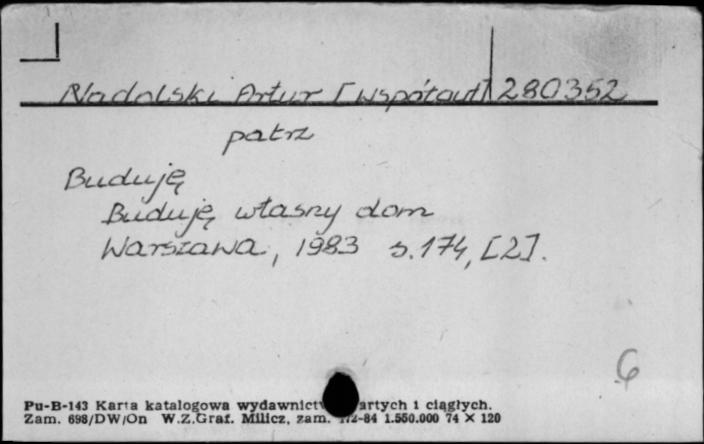 Nadolski Artur [współaut] 280352
patrz
Buduję
Buduję własny dom
Warszawa, 1983 s. 174, [2].
6
Pu-B-143 Karta katalogowa wydawnictw zwartych i ciągłych.
Zam. 698/DW/On W.Z.Graf. Milicz, zam. 112-84 1.550.000 74 × 120